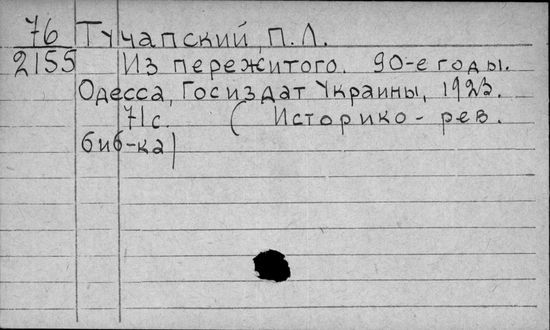 76 Тучапский, П. Л.
2155 Из пережитого. 90-е годы.
Одесса, Госиздат Украины, 1923.
71 с. (Историко-рев.
биб-ка)